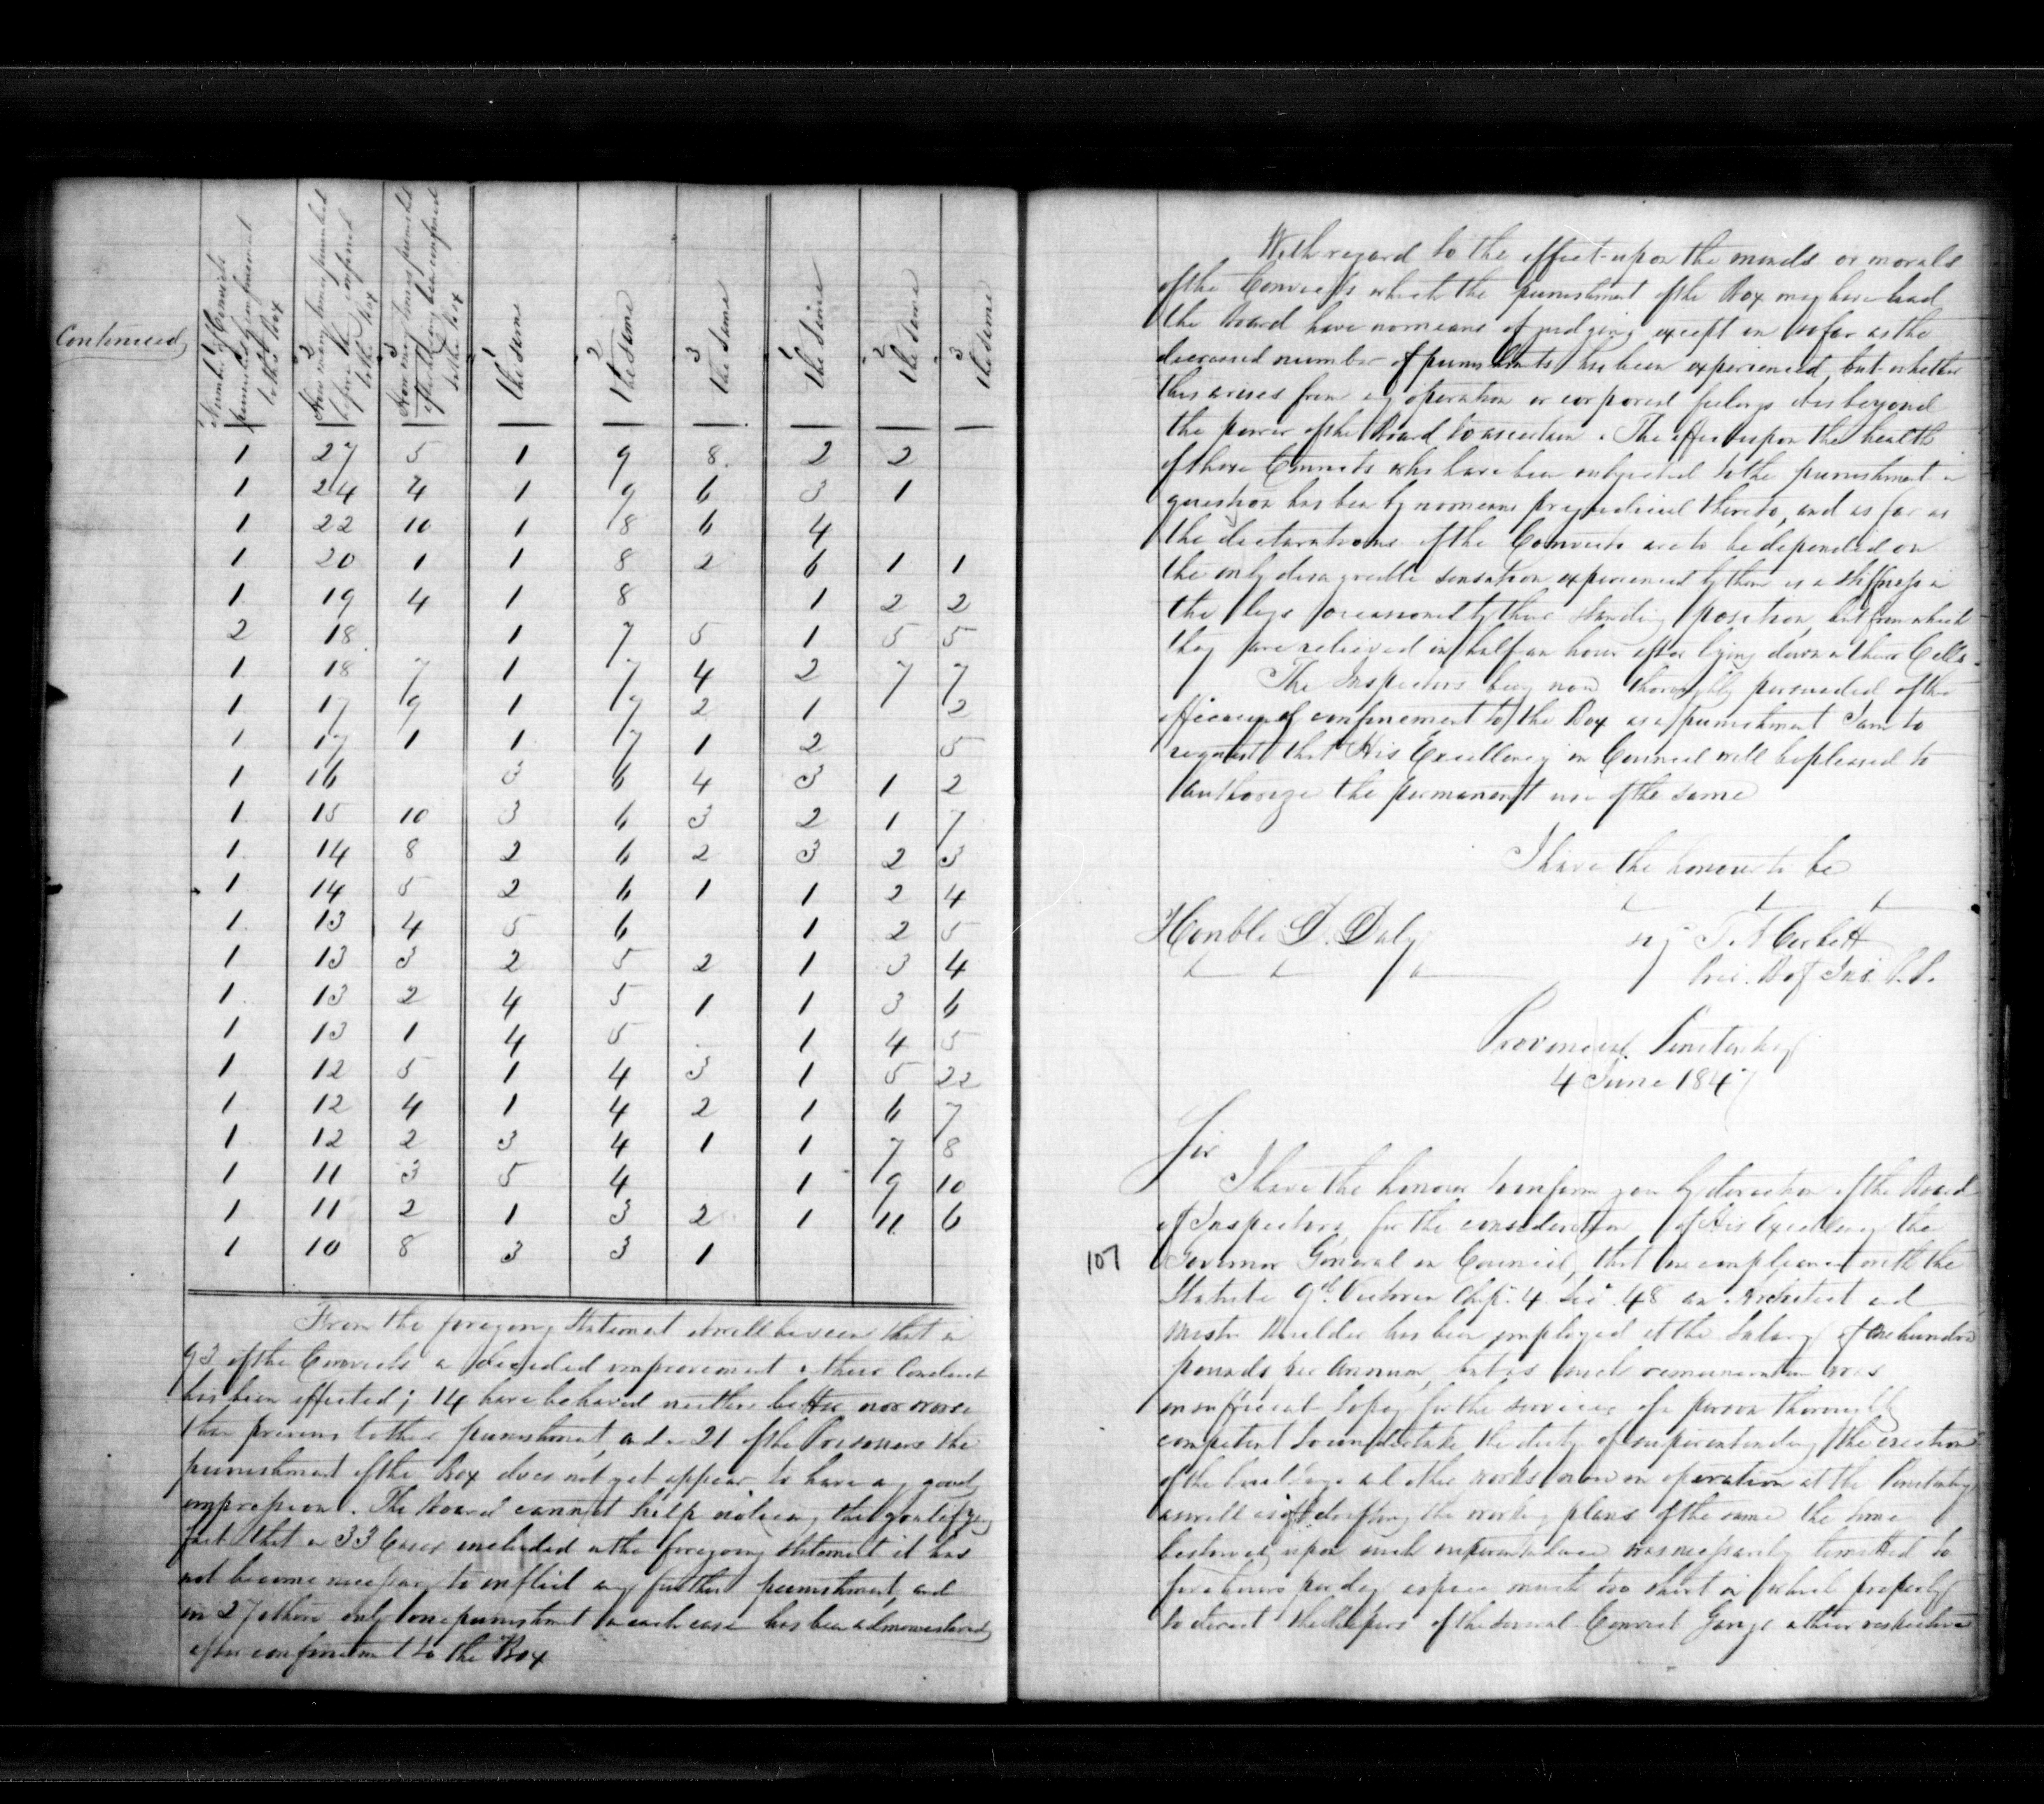 Continued
1 Number of Convicts
punished by confinement
to the Box
2 How many times punished
before they confined
to the box
3 How many times punished
after they been confined
to the box
1 the same
2 the same
3 the same
1 the same
2 the same
3 the same
1 27 5 1 9 8 2 2
1 24 4 1 9 6 3 1
1 22 10 1 8 6 4
1 20 1 1 8 2 6 1 1
1 19 4 1 8 1 2 2
2 18 1 7 5 1 5 5
1 18 7 1 7 4 2 7 7
1 17 9 1 7 2 1 2
1 17 1 1 7 1 2 5
1 16 3 6 4 3 1 2
1 15 10 3 6 3 2 1 7
1 14 8 2 6 2 3 2 3
1 14 5 2 6 1 1 2 4
1 13 4 5 6 1 2 5
1 13 3 2 5 2 1 3 4
1 13 2 4 5 1 1 3 6
1 13 1 4 5 1 4 5
1 12 5 1 4 3 1 5 22
1 12 4 1 4 2 1 6 7
1 12 2 3 4 1 1 7 8
1 11 3 5 4 1 9 10
1 11 2 1 3 2 1 11 6
1 10 8 3 3 1
From the foregoing Statement it will be seen that in
93 of the Convicts a decided improvement in their Conduct
has been effected; 14 have behaved neither better nor worse
than previous to their punishment, and in 21 of the Prisoners the
punishment of the Box does not yet appear to have any good
impression. The Board cannot help noticing the gratifying
fact that in 33 Cases included in the foregoing statement it has
not become necessary to inflict any further punishment, and
in 27 others only one punishment in each case has been administered
after confinement to the Box
With regard to the effect upon the minds or morals
of the Convicts which the punishment of the Box may have had
the Board have no means of judging except in so far as the
decreased number of punishments has been experienced, but whether
this arises from any operation or corporeal feelings it is beyond
the power of the Board to ascertain. The effect upon the health
of those Convicts who have been subjected to the punishment in
question has been by no means prejudicial thereto, and as far as
the declarations of the Convicts are to be depended on
the only disagreeable sensation experienced by them is a stiffness in
the legs occasioned by their standing position, but from which
they are relieved in half an hour after lying down in their Cells.
The Inspectors being now thoroughly persuaded of the
efficacy of confinement to the Box as a punishment I am to
request that His Excellency in Council will be pleased to
authorize the permanent use of the same
I have the honour to be
Honble D. Daly
Sig T. A Corbett
Pres. B of Ins. P.P.
Provincial Penitentiary
4 June 1847
Sir
I have the honour to inform you by direction of the Board
of Inspectors, for the consideration of His Excellency the
107 Governor General in Council, that in compliance with the
Statute 9th Victoria Chap. 4 Sec. 48 an Architect and
Master Builder has been employed at the Salary of one hundred
pounds per Annum, but as such remuneration was
insufficient to pay for the services of a person thoroughly
competent to undertake the duty of superintending the erection
of the buildings and other works now in operation at the Penitentiary
as well as of drafting the working plans of the same the time
bestowed upon such superintendence was necessarily limited to
hours per day a space much too short in which properly
to direct the Keepers of the several Convict Gangs in their respective